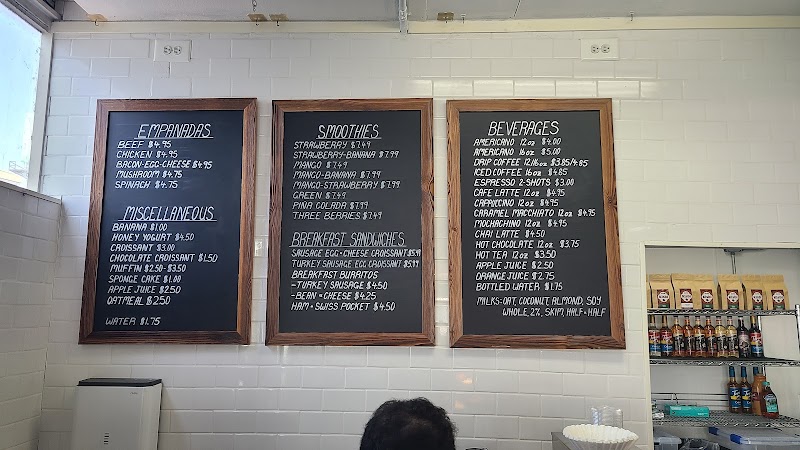 EMPANADAS
BEEF $4.95
CHICKEN $4.95
BACON-EGG-CHEESE $4.95
MUSHROOM $4.75
SPINACH $4.75
MISCELLANEOUS
BANANA $1.00
HONEY YOGURT $4.50
CROISSANT $3.00
CHOCOLATE CROISSANT $1.50
MUFFIN $2.50-$3.50
SPONGE CAKE $1.00
APPLE JUICE $2.50
OATMEAL $2.50
WATER $1.75
SMOOTHIES
STRAWBERRY $7.49
STRAWBERRY-BANANA $7.99
MANGO $7.49
MANGO-BANANA $7.99
MANGO-STRAWBERRY $7.99
GREEN $7.49
PINA COLADA $7.99
THREE BERRIES $7.49
BREAKFAST SANDWICHES
SAUSAGE EGG+CHEESE CROISSANT $5.99
TURKEY SAUSAGE EGG CROISSANT $5.99
BREAKFAST BURRITOS
-TURKEY SAUSAGE $4.50
-BEAN+CHEESE $4.25
HAM+SWISS POCKET $4.50
BEVERAGES
AMERICANO 12oz $4.00
AMERICANO 16oz $5.00
DRIP COFFEE 12/16oz $3.85/4.85
ICED COFFEE 16oz $4.85
ESPRESSO 2-SHOTS $3.00
CAFE LATTE 12oz $4.95
CAPPUCCINO 12oz $4.95
CARAMEL MACCHIATO 12oz $4.95
MOCHACHINO 12oz $4.95
CHAI LATTE $4.50
HOT CHOCOLATE 12oz $3.75
HOT TEA 12oz $3.50
APPLE JUICE $2.50
ORANGE JUICE $2.75
BOTTLED WATER $1.75
MILKS-OAT, COCONUT, ALMOND, SOY
WHOLE, 2%, SKIM, HALF+HALF